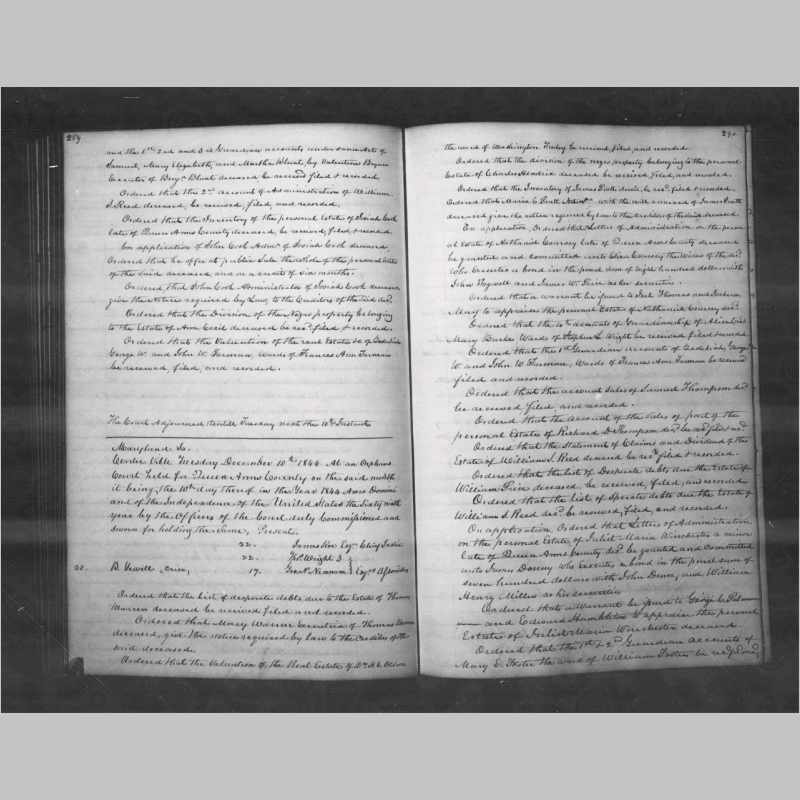 259
and the 1st 2nd and 3rd Guardian accounts
Samuel, Mary Elizabeth, and Martha Blunt, by Valentine Bryan
Executor of Benjn Blunt deceased be recevd filed & recorded.
Ordered that the 2nd account of Administration of William
J. Reed deceased, be received, filed, and recorded.
Ordered that the Inventory of the personal Estate of Josiah Cook
late of Queen Anns County deceased, be received, filed, & recorded.
On application of John Cook Admr of Josiah Cook deceased,
Ordered that he offer at public Sale the whole of the personal Estate
of the said deceased and on a credit of six months.
Ordered that John Cook Administrator of Josiah Cook deceased
give the Notice required by Law, to the Creditors of the said decd.
Ordered that the Division of the Negro property belonging
to the Estate of Ann Cecil deceased be recd filed & recorded.
Ordered that the Valuation of the real Estate of
George W. and John W. Furman, Wards of Frances Ann Furman
be received, filed, and recorded.
The Court Adjourned until Tuesday next the 10th Instant
Maryland Sc.
Centre Ville Tuesday December 10th 1844. At an Orphans
Court held for Queen Anns County on the said month
it being the 10th day thereof in the Year 1844 Anno Domini
and of the Independence of the United States the Sixty ninth
year by the Officers of the Court duly Commissioned and
sworn for holding the same, Present,
22. James Esqr Chief Justice
22. Thos Wright 3.
20. Crier, 17. Newnam Esqrs Associates
Ordered that the List of desperate debts due to the Estate of Thomas
Warren deceased be received filed and recorded.
Ordered that Mary Warren Executrix of Thomas
deceased, give the notice required by law to the Creditors of the
said deceased.
Ordered that the Valuation of the Real Estate of
290
the ward of Washington Finley be received, filed, and recorded.
Ordered that the division of the negro property belonging to the personal
Estate of Charles Hendrix deceased be received filed, and recorded.
Ordered that the Inventory of James Pratt decd, be recd filed & recorded.
Ordered that Maria E. Pratt Admx with the will annexed of James Pratt
deceased give the notice required by law to the creditors of the said deceased.
On application, Ordered that Letters of Administration on the person
al Estate of Nathaniel Comegy late of Queen Anns County deceased
be granted and committed unto the Widow of the decd
Who Executes a bond in the penal sum of eight hundred dollars with
John Hopwell and James W. Price as her securities.
Ordered that a warrant be issued to Thomas and
May to appraise the personal Estate of Nathaniel decd
Ordered that the accounts of Guardianship of
Mary Burke Wards of Stephen C. Wright be received filed & recorded
Ordered that the 1st Guardian accounts of George
W. and John W. Furman, Wards of Frances Ann Furman be received
filed and recorded.
Ordered that the account Sales of Samuel Thompson decd
be received filed, and recorded.
Ordered that the account of the Sales of part of the
personal Estate of Richard D. Thompson decd be recd filed recd
Ordered that the Statement of Claims and Dividend of the
Estate of William J. Reed deceased be recd filed & recorded.
Ordered that the list of Desperate debts due the Estate of
William Price deceased, be received, filed, and recorded
Ordered that the list of Sperate debts due the Estate of
William J. Reed decd be received, filed, and recorded.
On application Ordered that Letters of Administration
on the personal Estate of Juliet Maria Winchester a minor
late of Queen Anns County decd be granted and committed
unto Downy who Executes a bond in the penal sum of
seven hundred dollars with John Downy and William
Henry Miller as his securities
Ordered that a Warrant be issued to George
and Edward Hambleton to appraise the personal
Estate of Juliet Maria Winchester deceased
Ordered that the 1st & 2nd Guardian accounts of
Mary E. Foster the ward of William Foster be recd